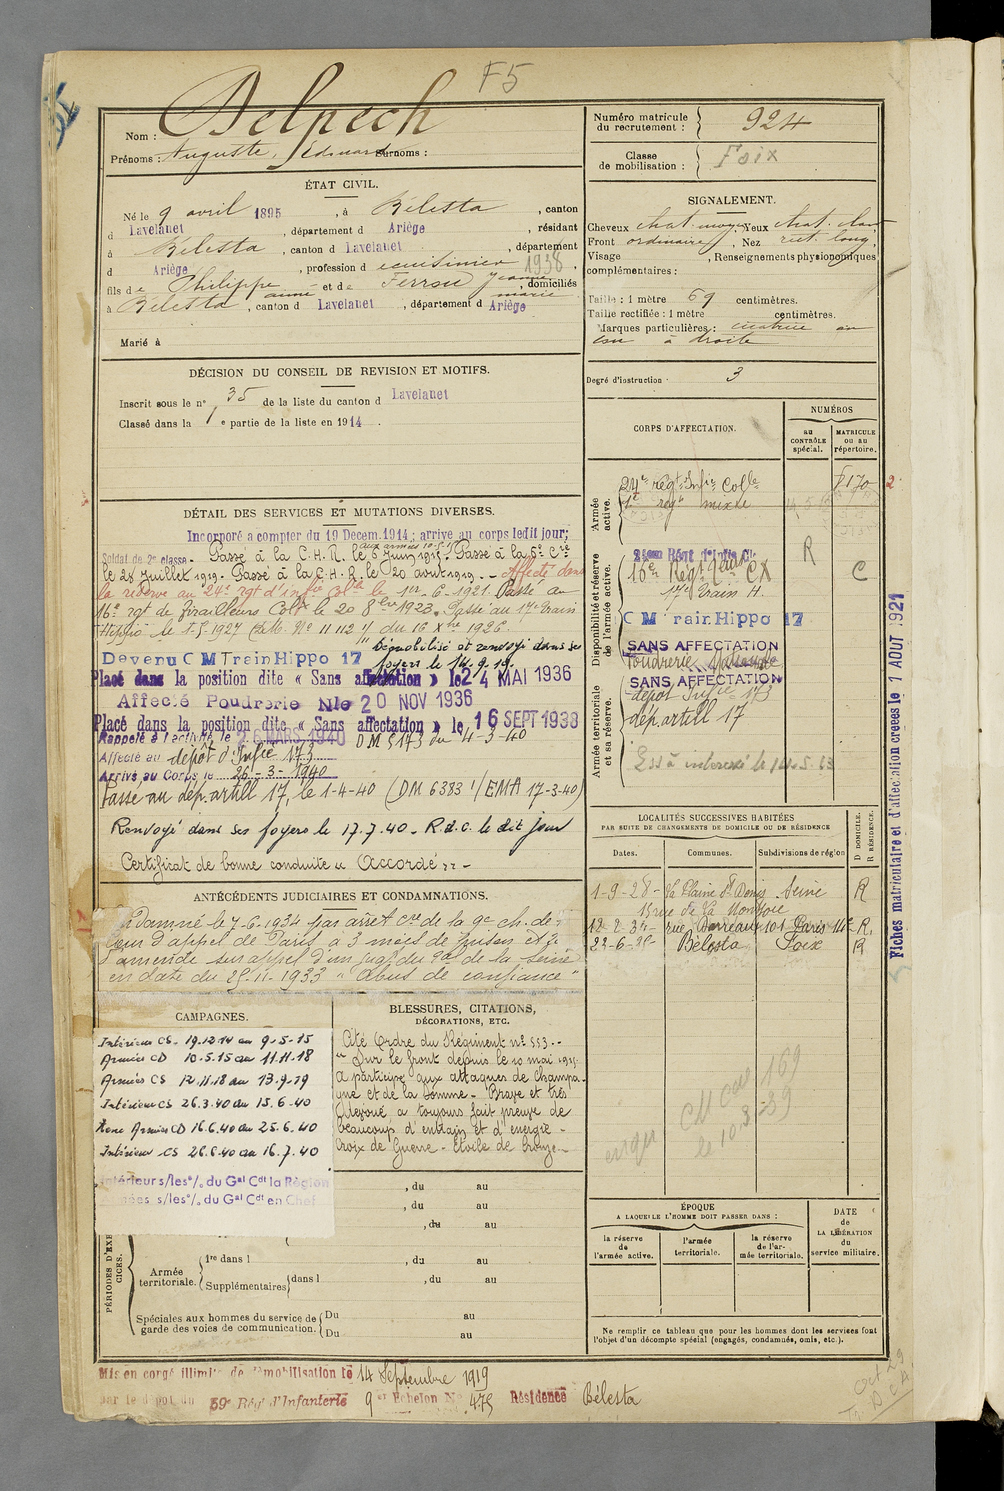 F5
Nom : Delpech
Prénoms : Auguste, Edouard Surnoms :
Numéro matricule du recrutement : 924
Classe de mobilisation : Foix
ÉTAT CIVIL.
Né le 9 avril 1895, à Bélesta, canton
d Lavelanet, département d Ariège, résidant
à Bélesta, canton d Lavelanet, département
d Ariège, profession d 1938
fils de Philippe et de Ferrou Jeanne marie, domiciliés
à Bélesta, canton d Lavelanet, département d Ariège
Marié à
SIGNALEMENT.
Cheveux chat. moyen Yeux chat. clair
Front ordinaire, Nez rect. long,
Visage , Renseignements physionomiques
complémentaires :
Taille : 1 mètre 69 centimètres.
Taille rectifiée : 1 mètre centimètres.
Marques particulières : cicatrice au
cou à droite
Degré d'instruction 3
DÉCISION DU CONSEIL DE REVISION ET MOTIFS.
Inscrit sous le n° 35 de la liste du canton d Lavelanet
Classé dans la 1e partie de la liste en 1914.
DÉTAIL DES SERVICES ET MUTATIONS DIVERSES.
Incorporé a compter du 19 Decem. 1914 ; arrive au corps ledit jour;
Soldat de 2e classe. Passé à la C.H.R. le 6 Juin 1915. Passé à la 5e Cie
aux armées 10-5-15
le 28 Juillet 1919. Passé à la C.H.R. le 20 aout 1919. Affecté dans
la réserve au 24e rgt d'infie colle le 1er-6-1921. Passé au
16e rgt de Tirailleurs Colx le 20 8bre 1923. Passé au 17e train
Hippo le 1.5.1927 du 16 Xbre 1926.
Démobilisé et renvoyé dans ses
foyers le 14.9.19.
Devenu C M Train Hippo 17
Placé dans la position dite « Sans affectation » le 24 MAI 1936
Affecté Poudrerie Nle 20 NOV 1936
Placé dans la position dite « Sans affectation » le 16 SEPT 1938
Rappelé à l'activité le 26 MARS 1940 DM 5143 du 4-3-40
Affecté au dépôt d'Infie 173
Arrivé au Corps le 26-3-1940
Passé au dép. artill 17, le 1-4-40 (DM 6383 1/EMA 17-3-40)
Renvoyé dans ses foyers le 17.7.40. R.d.c. le dit jour
Certificat de bonne conduite « Accordé »
CORPS D'AFFECTATION.
NUMÉROS
au CONTRÔLE spécial.
MATRICULE ou au répertoire.
Armée active.
24e regt Infie Colle
1er regt mixte
Disponibilité et réserve de l'armée active.
16e Regt Tiraill. CX
17e Train H.
C M Train Hippo 17
SANS AFFECTATION
Poudrerie Nationale
SANS AFFECTATION
Armée territoriale et sa réserve.
dépôt Infie 173
dép. artill 17
R
C
Fiches matriculaire et d'affectation créées le 1 AOUT 1921
LOCALITÉS SUCCESSIVES HABITÉES
PAR SUITE DE CHANGEMENTS DE DOMICILE OU DE RÉSIDENCE.
Dates. Communes. Subdivisions de région D DOMICILE. R RÉSIDENCE.
1-9-28 La Plaine St Denis Seine R
15 rue de la Montjoie
rue Darreau 101 Paris 14e R.
Bélesta Foix R
ANTÉCÉDENTS JUDICIAIRES ET CONDAMNATIONS.
Condamné le 7-6-1934 par arrêt Cre de la 9e ch. de la
Cour d'appel de Paris à 3 mois de prison et
d'amende sur appel d'un jugt du de la Seine
en date du 25-11-1933 "Abus de confiance"
CAMPAGNES.
Intérieur CS. 19.12.14 au 9-5-15
Armées CD 10.5.15 au 11.11.18
Armées CS 12.11.18 au 13.9.19
Intérieur CS 26.3.40 au 15.6.40
Zone Armées CD 16.6.40 au 25.6.40
Intérieur CS 26.6.40 au 16.7.40
Intérieur s/les o/. du Gal Cdt la Région
Armées s/les o/. du Gal Cdt en Chef
BLESSURES, CITATIONS,
DÉCORATIONS, ETC.
Cité Ordre du Régiment n° 553.
"Sur le front depuis le 10 mai 1915
A participé aux attaques de Champa-
gne et de la Somme. Brave et très
dévoué a toujours fait preuve de
beaucoup d'entrain et d'énergie.
Croix de Guerre. Etoile de bronze.
CM 169
le 10-3-39
, du au
, du au
, du au
PÉRIODES D'EXERCICES.
Armée territoriale.
1re dans l , du au
Supplémentaires dans l , du au
Spéciales aux hommes du service de garde des voies de communication.
Du au
Du au
ÉPOQUE
A LAQUELLE L'HOMME DOIT PASSER DANS :
la réserve de l'armée active.
l'armée territoriale.
la réserve de l'armée territoriale.
DATE de LA LIBÉRATION du service militaire.
Ne remplir ce tableau que pour les hommes dont les services font
l'objet d'un décompte spécial (engagés, condamnés, omis, etc.).
Mis en congé illimité de démobilisation le 14 Septembre 1919
par le dépôt du 59e Régt d'Infanterie 9e Echelon No 475 Résidence Bélesta